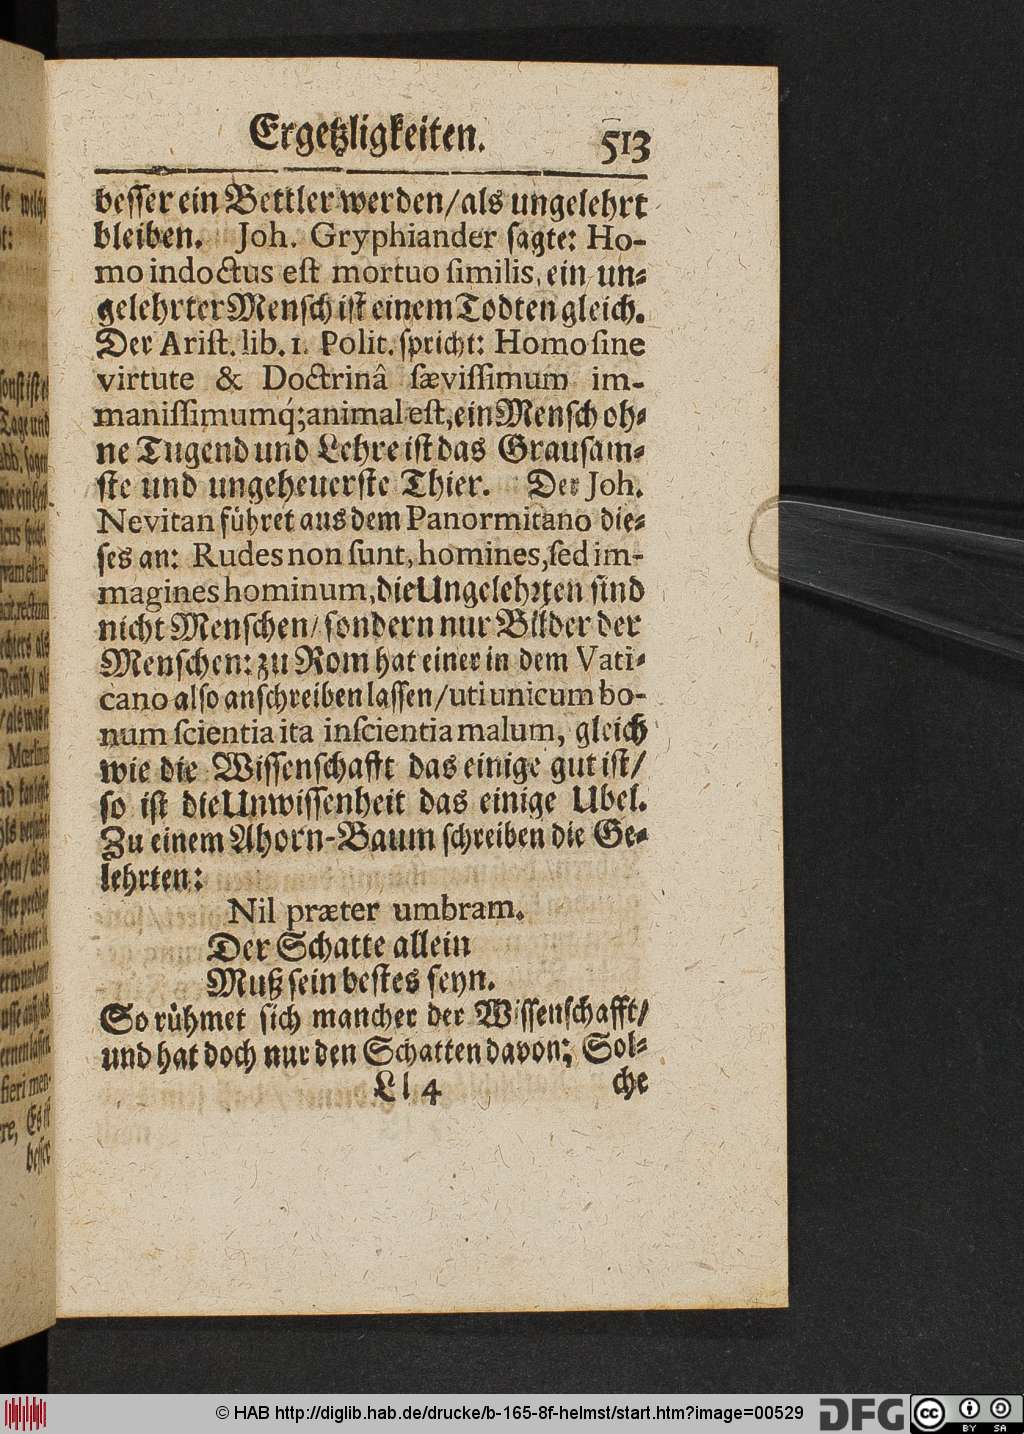 Ergetzligkeiten. 513
besser ein Bettler werden/als ungelehrt
bleiben. Joh. Gryphiander sagte: Ho-
mo indoctus est mortuo similis, ein un-
gelehrter Mensch ist einem Todten gleich.
Der Arist. lib. 1. Polit. spricht: Homo sine
virtute & Doctrinâ sævissimum im-
manissimumq́; animal est, ein Mensch oh-
ne Tugend und Lehre ist das Grausam-
ste und ungeheuerste Thier. Der Joh.
Nevitan führet aus dem Panormitano die-
ses an: Rudes non sunt, homines, sed im-
magines hominum, die Ungelehrten sind
nicht Menschen/ sondern nur Bilder der
Menschen: zu Rom hat einer in dem Vati-
cano also anschreiben lassen/ uti unicum bo-
num scientia ita inscientia malum, gleich
wie die Wissenschafft das einige gut ist/
so ist die Unwissenheit das einige Ubel.
Zu einem Ahorn-Baum schreiben die Ge-
lehrten:
Nil præter umbram.
Der Schatte allein
Muß sein bestes seyn.
So rühmet sich mancher der Wissenschafft/
und hat doch nur den Schatten davon; Sol-
Ll 4 che
© HAB http://diglib.hab.de/drucke/b-165-8f-helmst/start.htm?image=00529
DFG
cc
BY SA